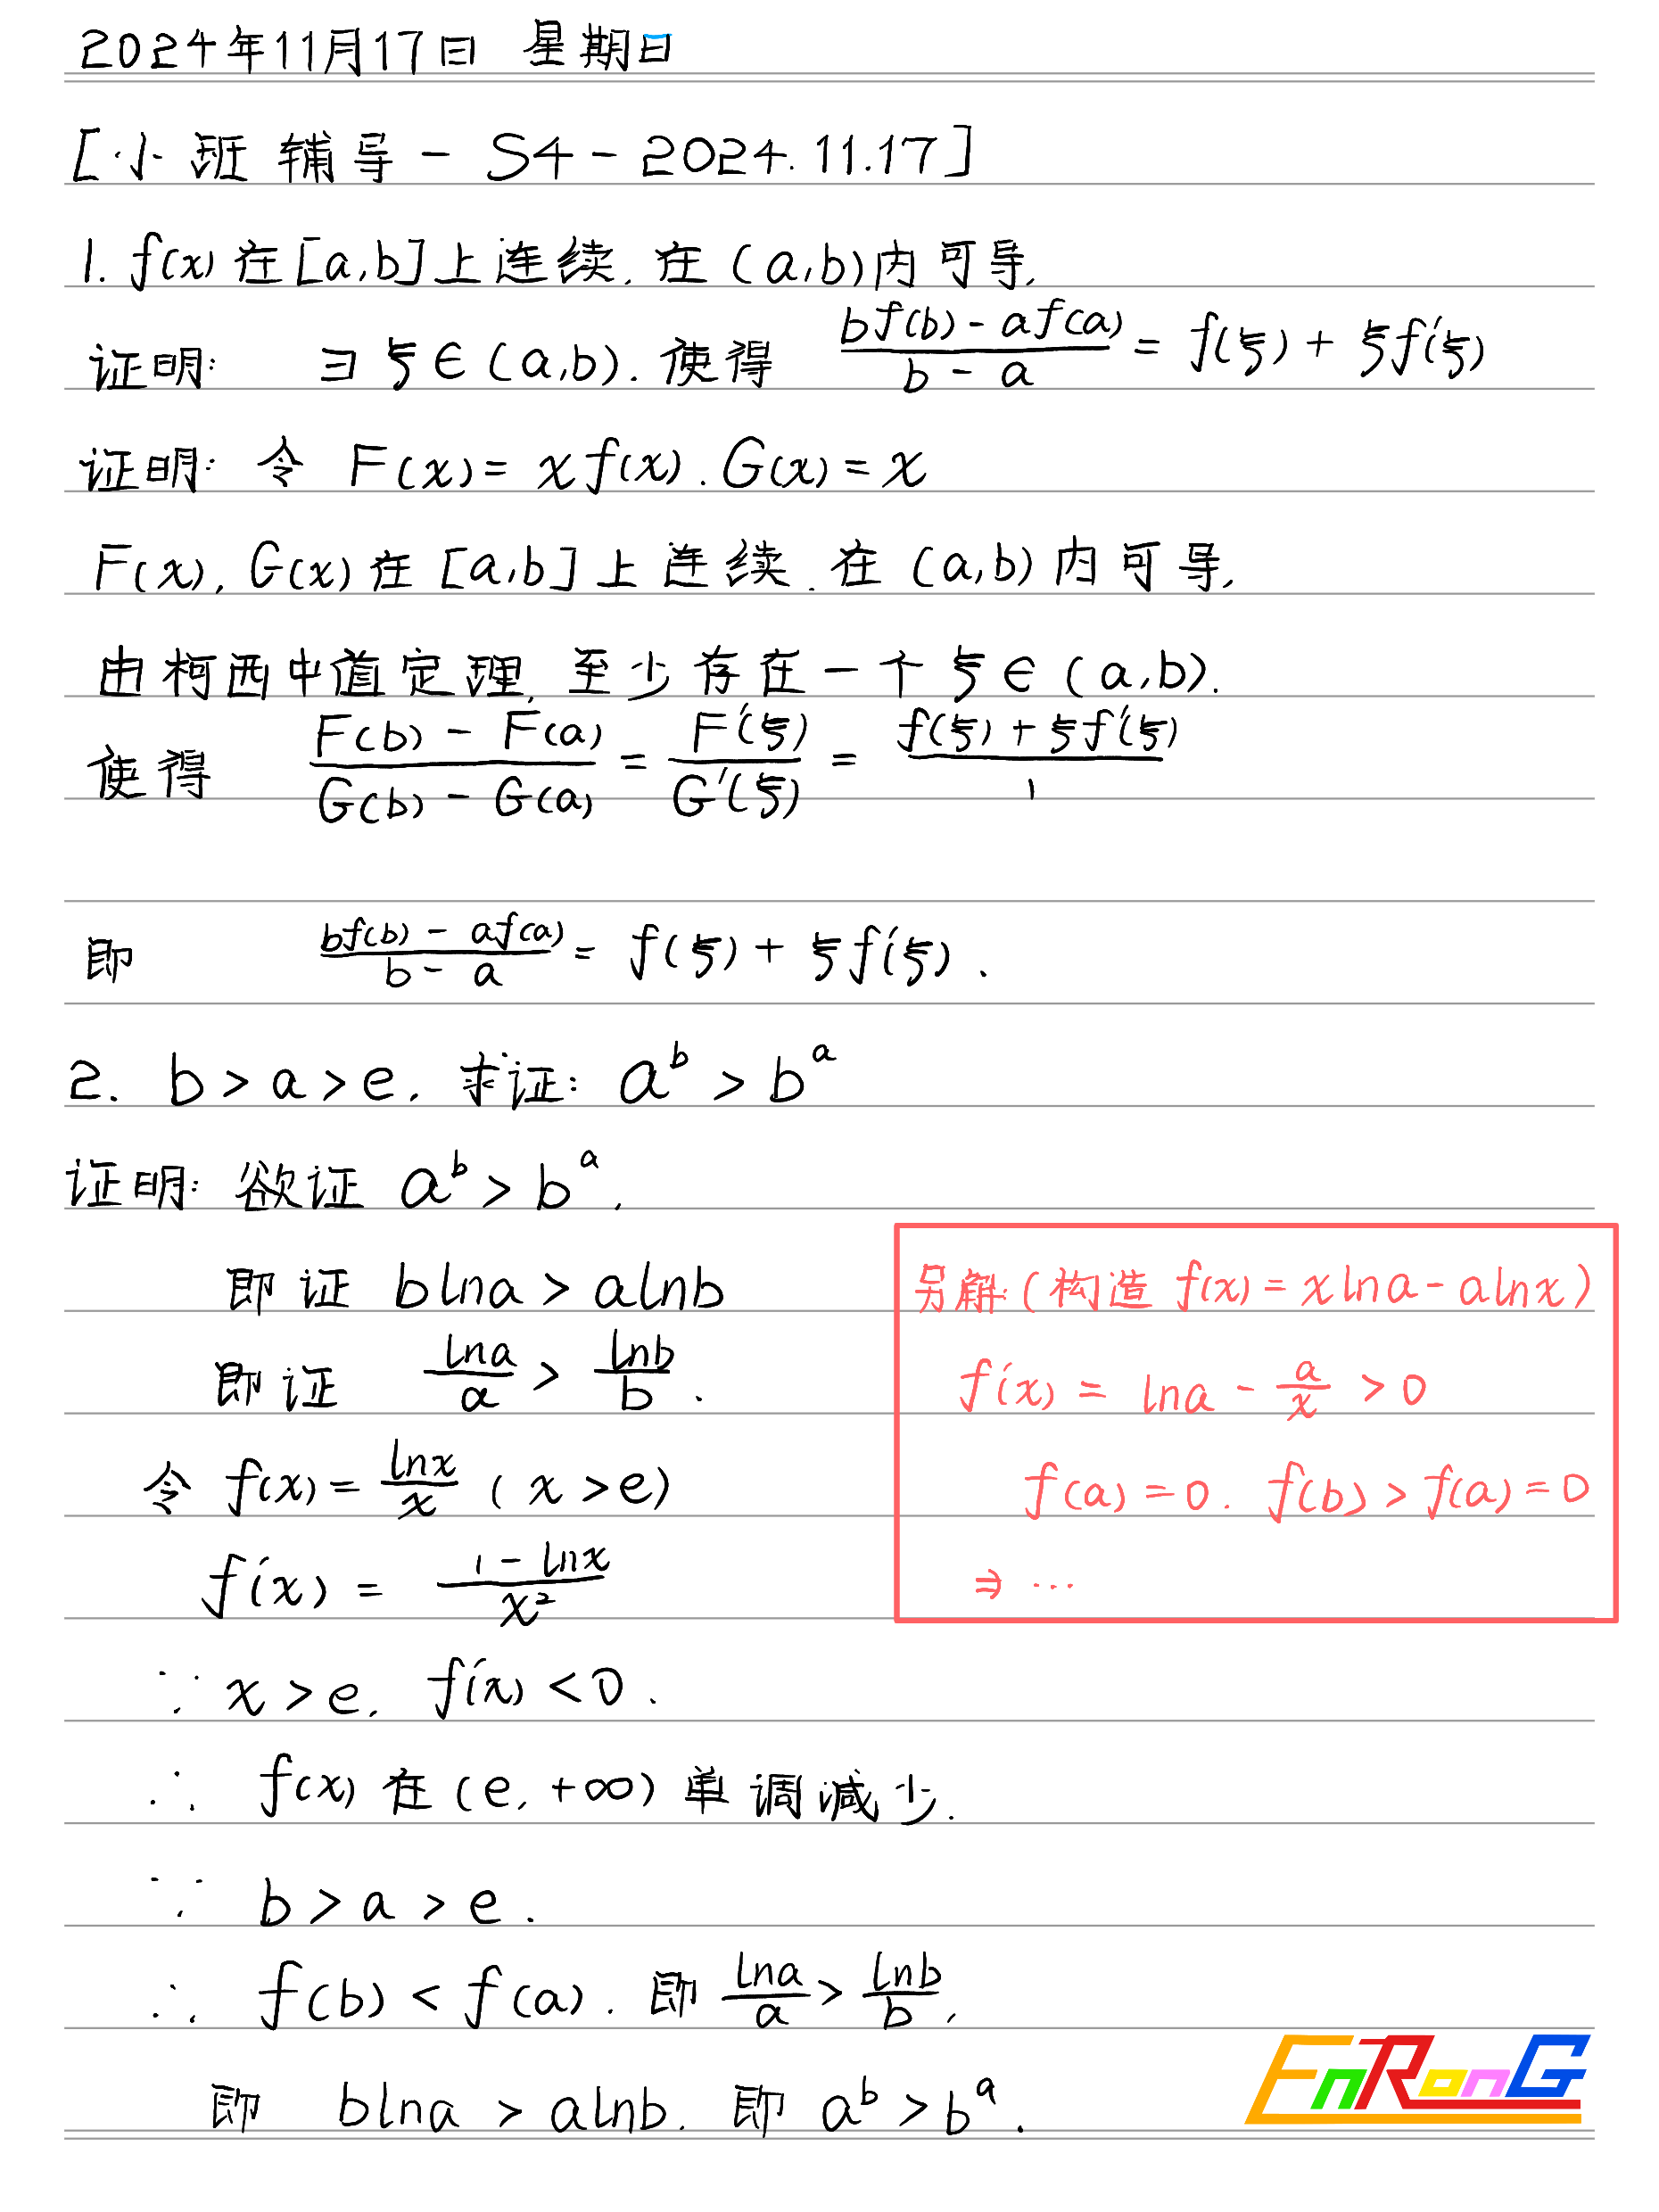 2024年11月17日 星期日
[小班辅导 - S4 - 2024.11.17]
1. f(x) 在 [a,b] 上连续, 在 (a,b) 内可导,
证明: ∃ ξ ∈ (a,b). 使得 (bf(b) - af(a))/(b - a) = f(ξ) + ξf'(ξ)
证明: 令 F(x) = xf(x). G(x) = x
F(x), G(x) 在 [a,b] 上连续. 在 (a,b) 内可导,
由柯西中值定理, 至少存在一个 ξ ∈ (a,b).
使得 (F(b) - F(a))/(G(b) - G(a)) = F'(ξ)/G'(ξ) = (f(ξ) + ξf'(ξ))/1
即 (bf(b) - af(a))/(b - a) = f(ξ) + ξf'(ξ).
2. b > a > e. 求证: a^b > b^a
证明: 欲证 a^b > b^a.
即证 blna > alnb
即证 lna/a > lnb/b.
令 f(x) = lnx/x (x > e)
f'(x) = (1 - lnx)/x²
∵ x > e. f'(x) < 0.
∴ f(x) 在 (e, +∞) 单调减少.
∵ b > a > e.
∴ f(b) < f(a). 即 lna/a > lnb/b,
即 blna > alnb. 即 a^b > b^a.
另解: (构造 f(x) = xlna - alnx)
f'(x) = lna - a/x > 0
f(a) = 0. f(b) > f(a) = 0
⇒ ...
EnRonG